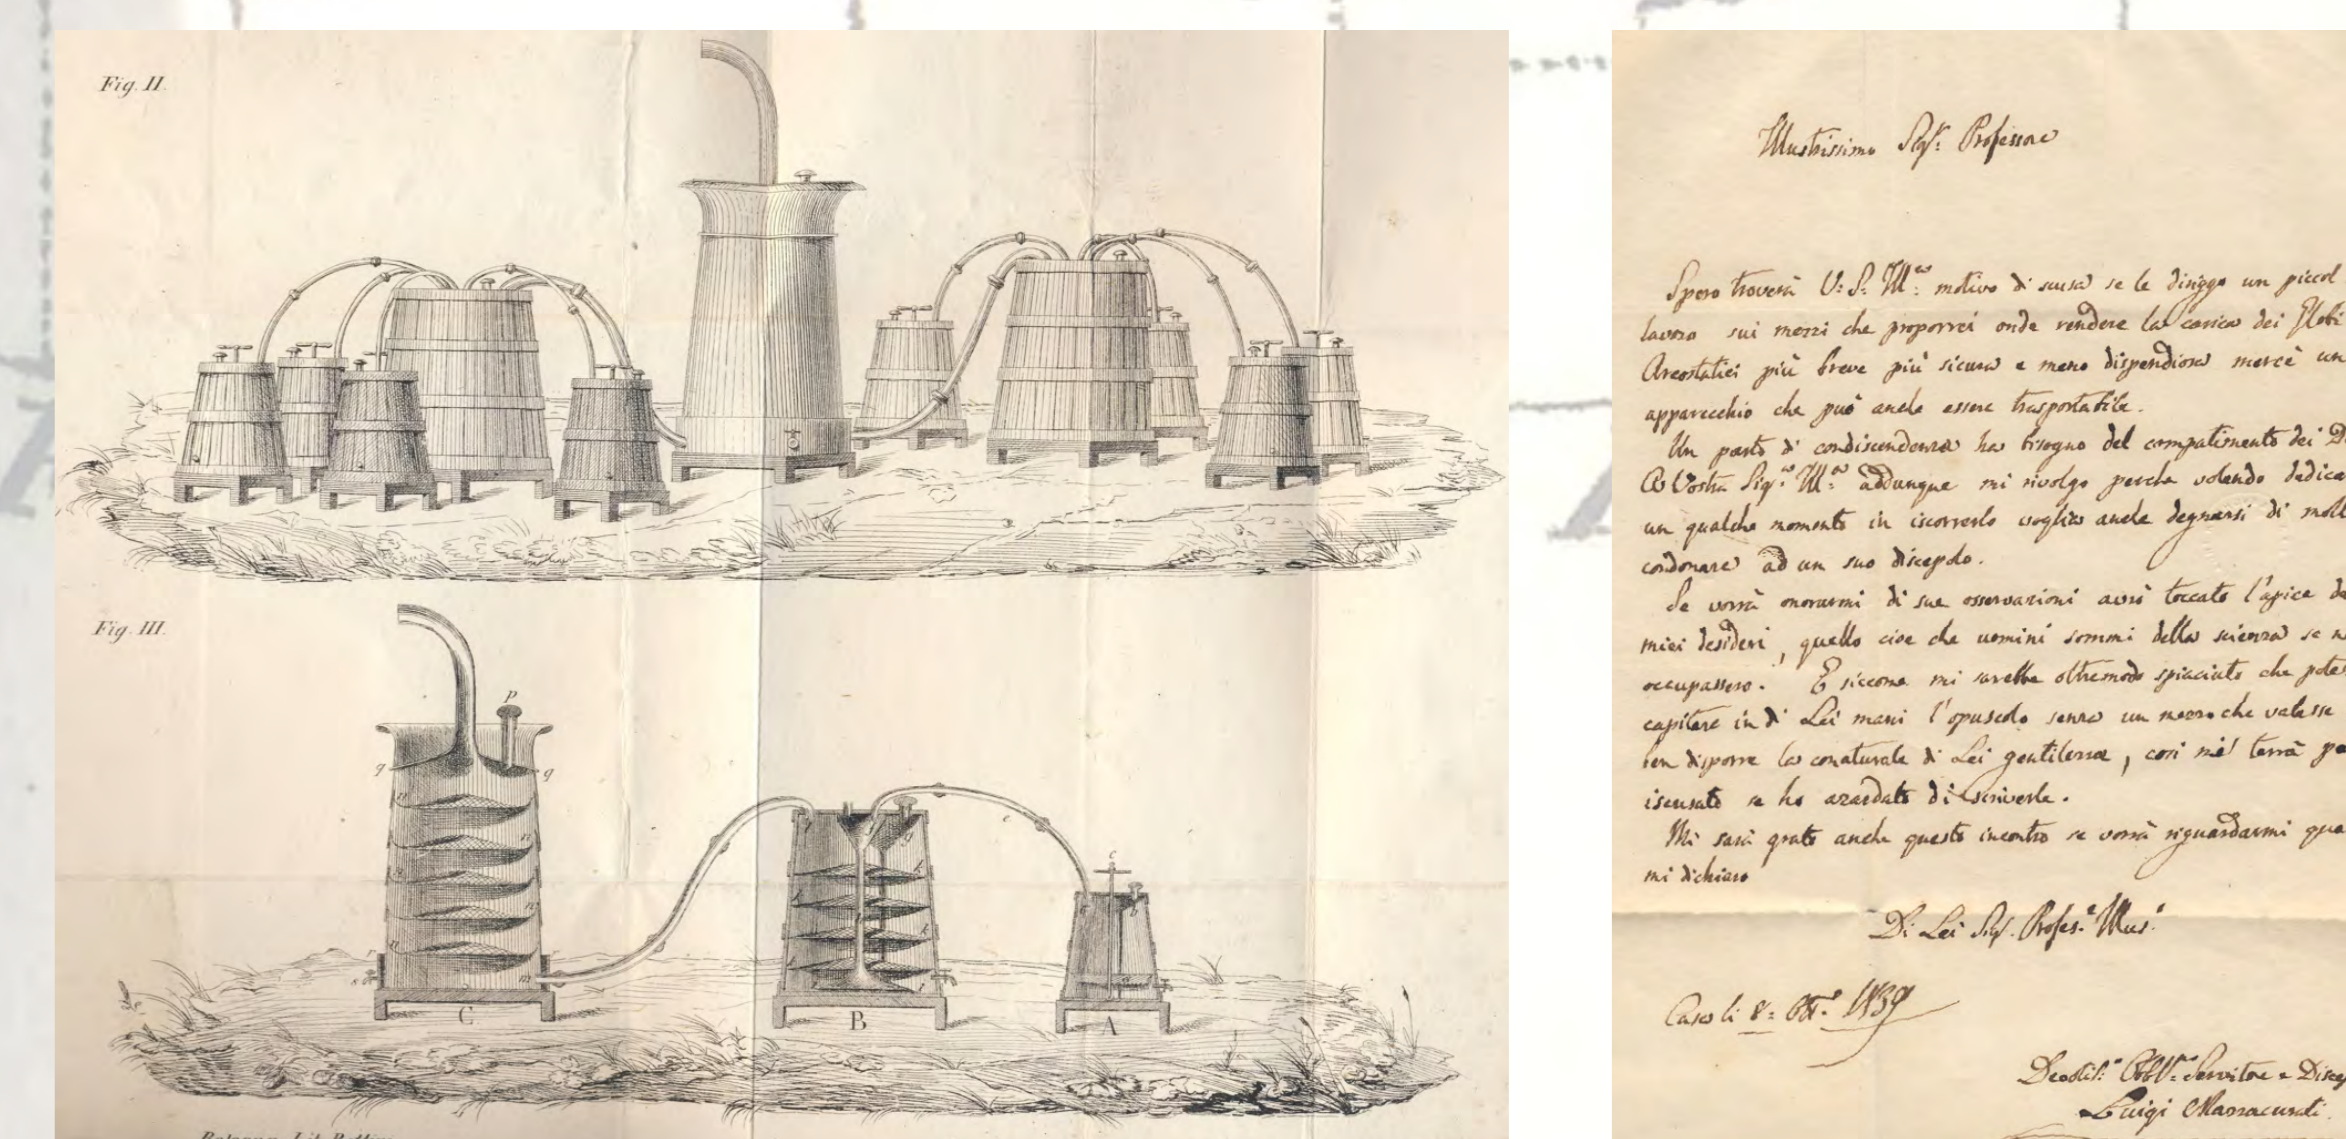 Fig. II.
Fig. III.
p
q
q
n
n
n
n
n
n
r
s
m
C
B
e
c
A
Bologna Lit. Bettini
Illustrissimo Sigr: Professore
Spero troverà V: S: Ill: motivo di scusa se le dirigo un piccol
lavoro sui mezzi che proporrei onde rendere la carica dei Globi
Areostatici più breve più sicura e meno dispendiosa mercè un
apparecchio che può anche essere trasportabile.
Un parto di condiscendenza ha bisogno del compatimento dei D
A Vostra Sigr: Ill: addunque mi rivolgo perche volendo dedica
un qualche momento in iscorrerlo voglia anche degnarsi di molt
condonare ad un suo discepolo.
Se vorrà onorarmi di sue osservazioni avrò toccato l'apice de
miei desideri, quello cioe che uomini sommi della scienza se n
occupassero. E siccome mi sarebbe oltremodo spiaciuto che pote
capitare in di Lei mani l'opuscolo senza un mezzo che valesse
ben disporre la conaturale di Lei gentilezza, così mi terrà pe
iscusato se ho azardato di scriverle.
Mi sarà grato anche questo incontro se vorrà riguardarmi qua
mi dichiaro
Di Lei Sigr. Profes: Illus:
Casa li 8: 1839
Servitore e Disce
Luigi Marzacurati